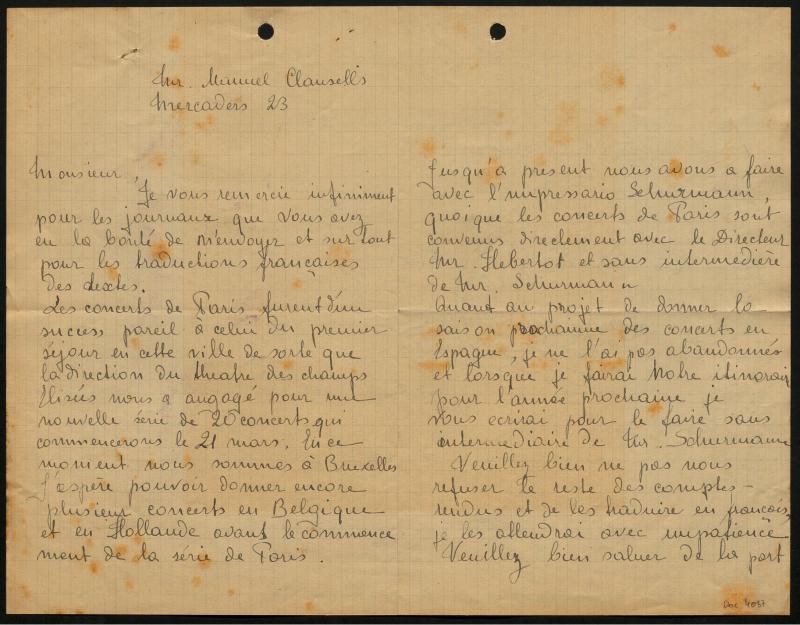 Mr. Manuel Clausells
Mercaders 23
Monsieur,
Je vous remercie infiniment
pour les journaux que vous avez
eu la bonté de m'envoyer et surtout
pour les traductions françaises
des textes.
Les concerts de Paris furent d'un
success pareil à celui du premier
séjour en cette ville de sorte que
la direction du theatre des champs
Elisés nous a angogé pour une
nouvelle série de 20 concerts qui
commencerons le 21 mars. En ce
moment nous sommes à Bruxelles
J'espère pouvoir donner encore
plusieur concerts en Belgique
et en Hollande avant le commence
ment de la série de Paris.
Jusqu'a present nous avons a faire
avec l'impressario Schurmann,
quoique les concerts de Paris sont
convenus directement avec le Directeur
Mr. Hebertot et sans intermedière
de Mr. Schurmann
Quant au projet de donner la
saison prochainne des concerts en
Espagne, je ne l'ai pas abandonnés
et lorsque je fairai notre itinerair
pour l'année prochaine je
vous ecrirai pour le faire sans
intermediaire de Mr. Schurmann
Veuillez bien ne pas nous
refuser le reste des comptes-
rendus et de les traduire en francais,
je les attendrai avec impatience
Veuillez bien saluer de la part
Doc 4037